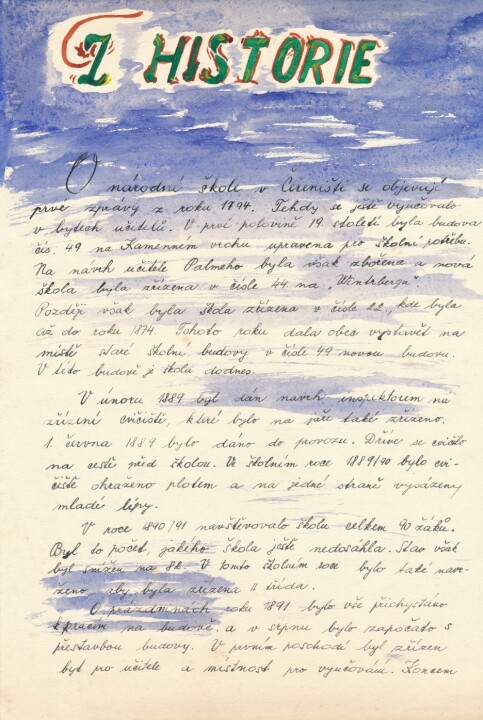 Z HISTORIE
O národní škole v Čeřeništi se objevují
prvé zprávy z roku 1794. Tehdy se ještě vyučovalo
v bytech učitelů. V prvé polovině 19. století byla budova
čís. 49 na Kamenném vrchu upravena pro školní potřebu.
Na návrh učitele Palmeho byla však zbořena a nová
škola byla zřízena v čísle 44. na „Wintrbergu"
Později však byla škola zřízena v čísle 22, kde byla
až do roku 1874. Tohoto roku dala obec vystavět na
místě staré školní budovy v čísle 49 novou budovu.
V této budově je škola dodnes.
V únoru 1889 byl dán návrh inspektorem na
zřízení cvičiště, které bylo na jaře také zřízeno.
1. června 1889 bylo dáno do provozu. Dříve se cvičilo
na cestě před školou. Ve školním roce 1889/90 bylo cvi-
čiště ohraženo plotem a na jedné straně vysázeny
mladé lípy.
V roce 1890/91 navštěvovalo školu celkem 90 žáků.
Byl to počet, jakého škola ještě nedosáhla. Stav však
byl snížen na 82. V tomto školním roce bylo také naře-
zeno, aby byla zřízena II třída.
O prázdninách roku 1891 bylo vše přichystáno
k pracím na budově a v srpnu bylo započato s
přestavbou budovy. V prvním poschodí byl zřízen
byt pro učitele a místnost pro vyučování. Koncem